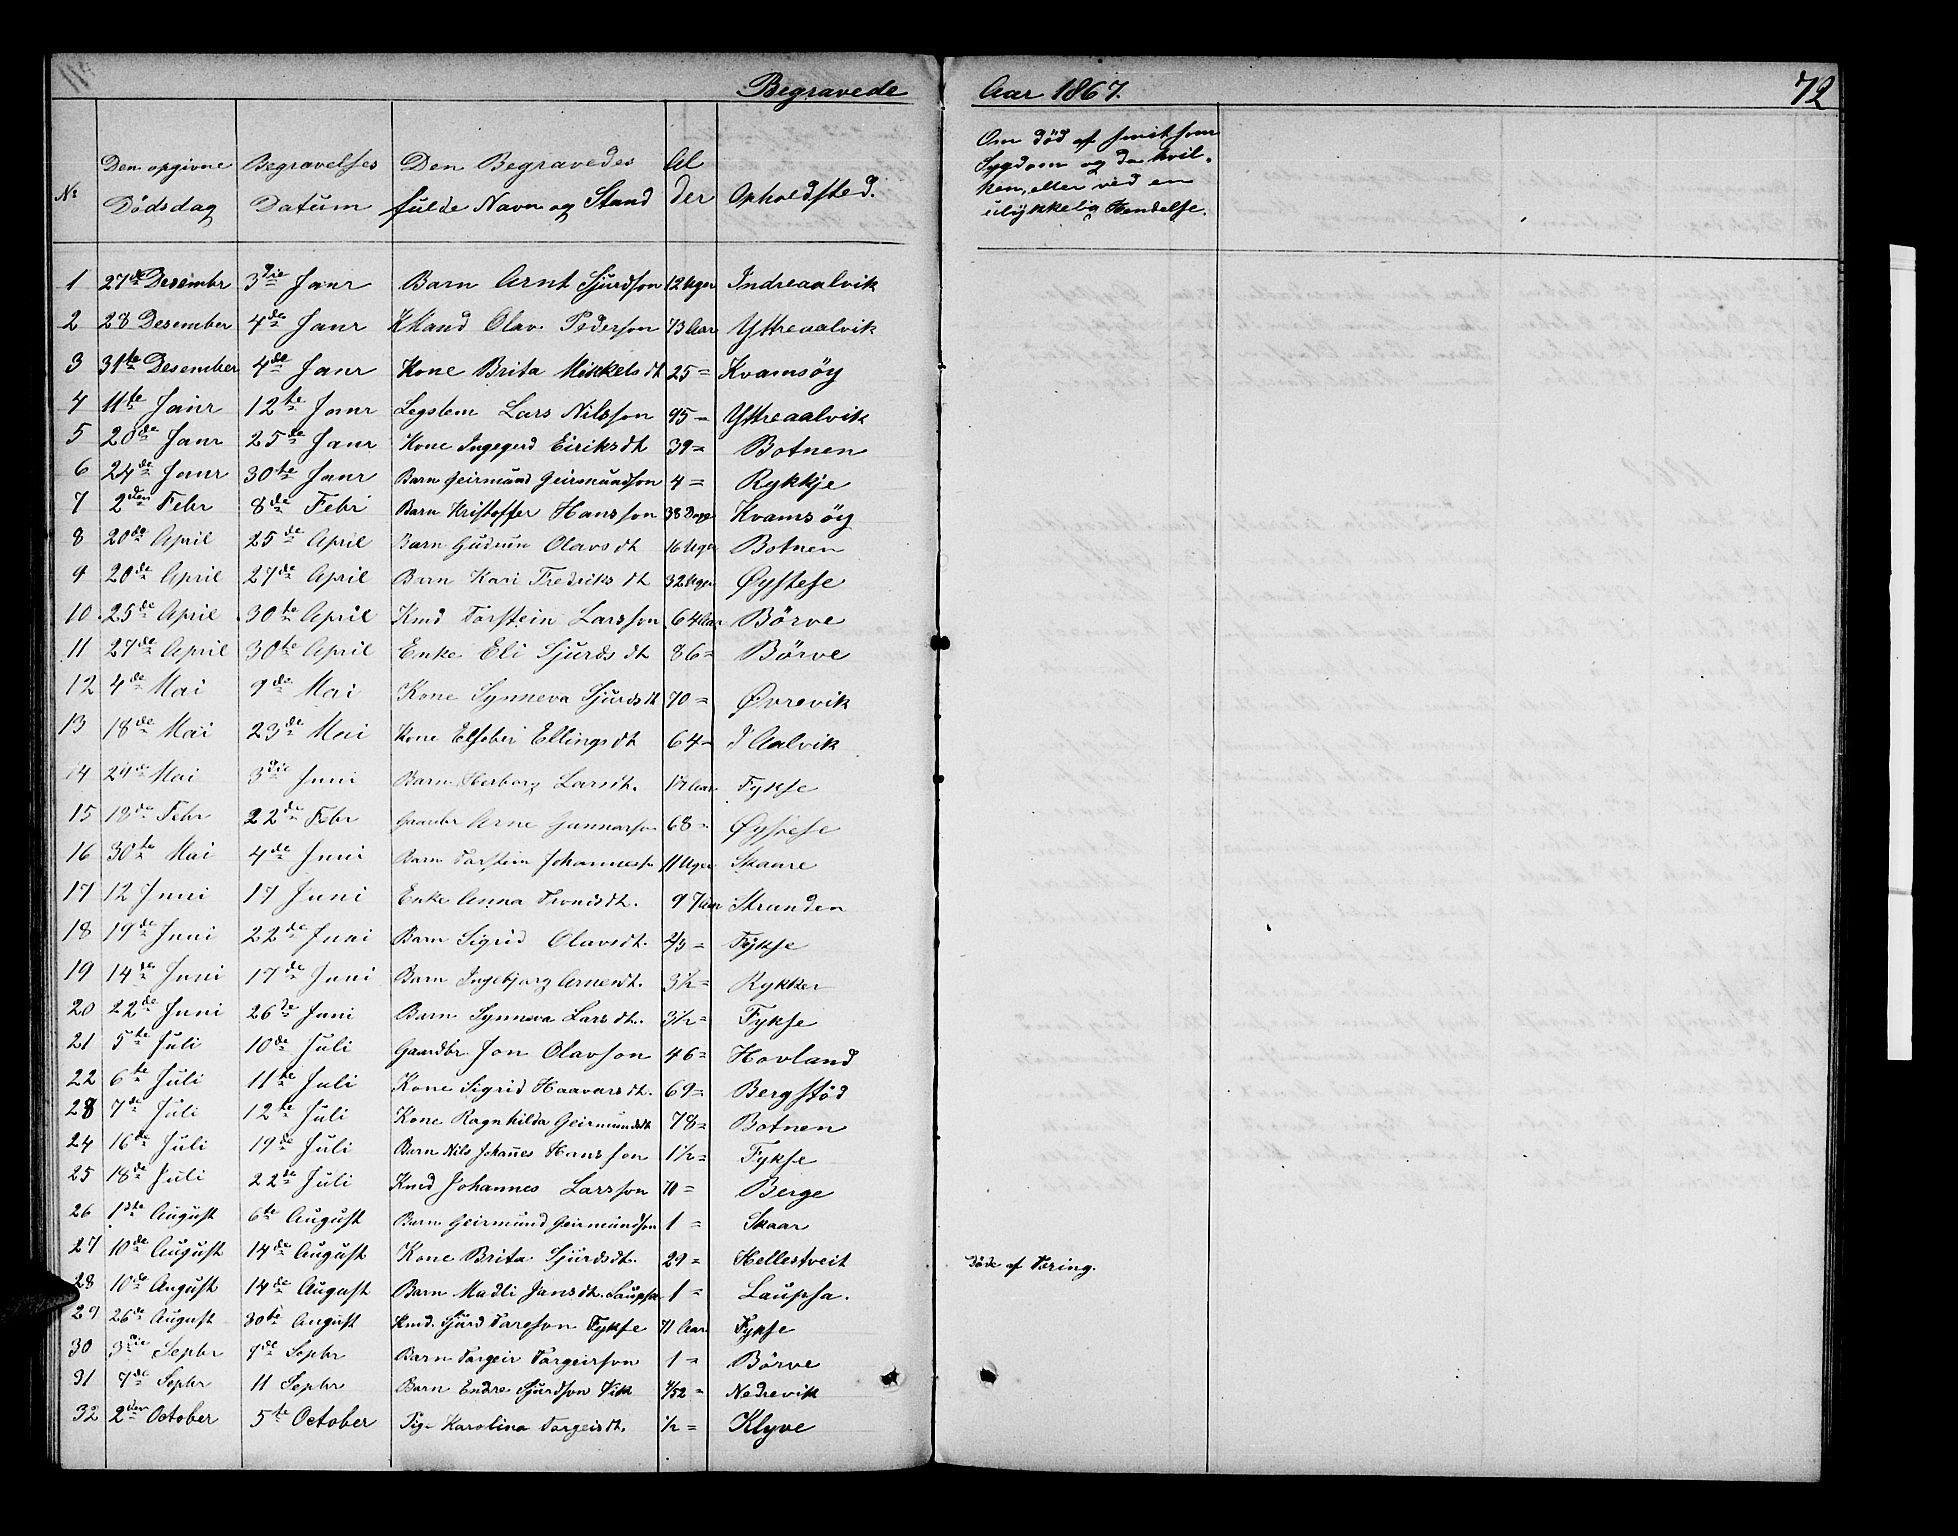 Begravede
Aar 1867.
72
No
Den opgivne Dödsdag
Begravelses Datum
Den Begravedes fulde Navn og Stand
Alder
Opholdsted.
Om död af smitsom
Sygdom og da hvil-
ken, eller ved en
ulykkelig Hendelse.
1 27de Desembr 3die Janr Barn Arnt Sjurdson 12 Uger Indreaalvik
2 28 Desember 4de Janr KMand Olav Pederson 73 Aar Yttreaalvik
3 31te Desember 4de Janr Kone Brita Mikkelsdt 25 = Kvamsöy
4 11te Janr 12te Janr Legslem Lars Nilsson 95 = Yttreaalvik
5 20de Janr 25de Janr Kone Ingegerd Eiriksdt 39 = Botnen
6 24de Janr 30te Janr Barn Geirmund Geirmundson 4 = Rykkje
7 2den Febr 8de Febr Barn Kristoffer Hansson 38 Dage Kvamsöy
8 20de April 25de April Barn Gudrun Olavsdt 16 Uger Botnen
9 20de April 27de April Barn Kari Fredriksdt 32 Uger Øystese
10. 25de April 30te April Kmd Torstein Larsson 64 Aar Börve
11 27de April 30te April Enke Eli Sjurdsdt 86 = Börve
12 4de Mai 9de Mai Kone Synneva Sjurdsdt 70 = Øvrevik
13 18de Mai 23de Mai Kone Elsebei Ellingsdt 64 = I Aalvik
14 29de Mai 3die Juni Barn Herborg Larsdt. Aar Fykse
15 18de Febr 22de Febr Gaardbr Arne Gunnarson 68 = Øystese
16 30te Mai 4de Juni Barn Torstein Johanness 11 Uger Skaare
17 12 Juni 17 Juni Enke Anna Trondsdt. 9 Stranden
18 19de Juni 22de Juni Barn Sigrid Olavsdt. 2/3 = Fykse
19 14de Juni 17de Juni Barn Ingebjorg Arnesdt. 3½ = Rykker
20 22de Juni 26de Juni Barn Synneva Larsdt. 3½ = Fykse
21 5te Juli 10de Juli Gaardbr. Jon Olavson 46 = Hovland
22 6te Juli 11te Juli Kone Sigrid Haavarsdt. 69 = Bergstöd
23 7de Juli 12te Juli Kone Ragnhilda Geirmundsdt 78 = Botnen
24 16de Juli 19de Juli Barn Nils Johannes Hansson 1½ = Fykse
25 18de Juli 22de Juli Kmd Johannes Larsson 70 = Berge
26 1ste August 6te August Barn Geirmund Geirmundson 1 = Skaar
27 10de August 14de August Kone Brita Sjurdsdt. 29 = Hellestveit Döde af Tæring.
28 10de August 14de August Barn Madli Jansdt. Laupsa 1 = Laupsa.
29 26de August 30te August Kmd. Sjurd Tareson Fykse 71 Aar Fykse
30 3die Sepbr 9de Sepbr Barn Torgeir Torgeirson 1 = Börve
31 7de Sepbr 11 Sepbr Barn Endre Sjurdson Vik 4/52 = Nedrevik
32 2den October 5te October Pig- Karolina Torgeirsdt. ½ = Klyve